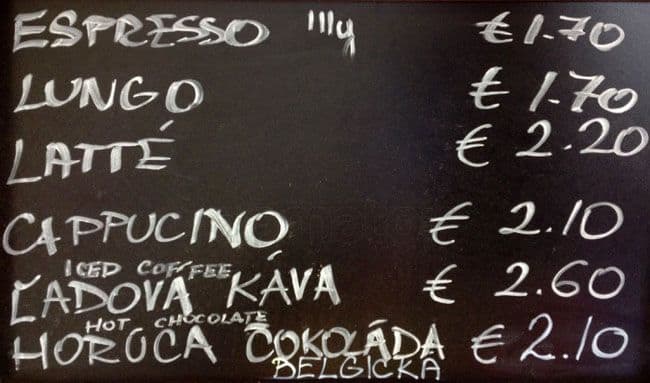 ESPRESSO illy € 1.70
LUNGO € 1.70
LATTÉ € 2.20
CAPPUCINO € 2.10
ICED COFFEE
ĽADOVÁ KÁVA € 2.60
HOT CHOCOLATE
HORÚCA ČOKOLÁDA € 2.10
BELGICKÁ